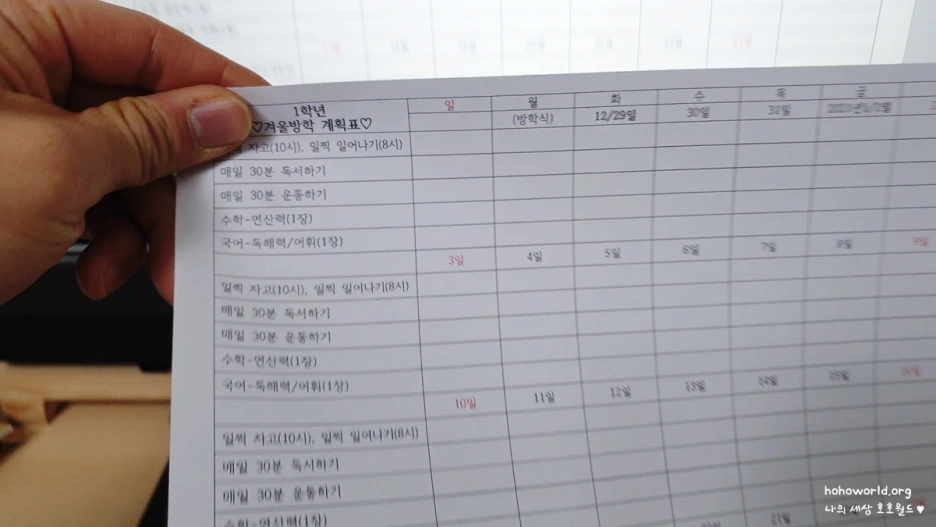 1학년
♡겨울방학 계획표♡
일 월 화 수 목 금
(방학식) 12/29일 30일 31일
자고(10시), 일찍 일어나기(8시)
매일 30분 독서하기
매일 30분 운동하기
수학-연산력(1장)
국어-독해력/어휘(1장)
3일 4일 5일 6일 7일 8일 9일
일찍 자고(10시), 일찍 일어나기(8시)
매일 30분 독서하기
매일 30분 운동하기
수학-연산력(1장)
국어-독해력/어휘(1장)
10일 11일 12일 13일 14일 15일 16일
일찍 자고(10시), 일찍 일어나기(8시)
매일 30분 독서하기
매일 30분 운동하기
수학-연산력(1장)
21일
hohoworld.org
나의 세상 호호월드♥